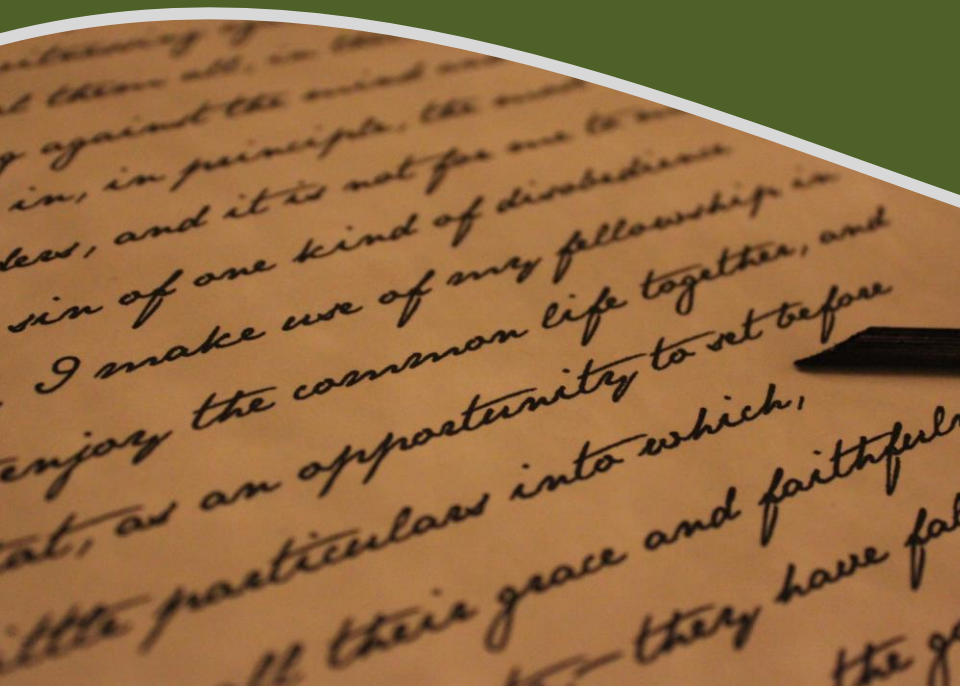 against the mind
in, in principle, the
and it is not for me to
sin of one kind of disobedience
I make use of my fellowship in
enjoy the common life together, and
as an opportunity to set before
particulars into which,
all their grace and
they have
the